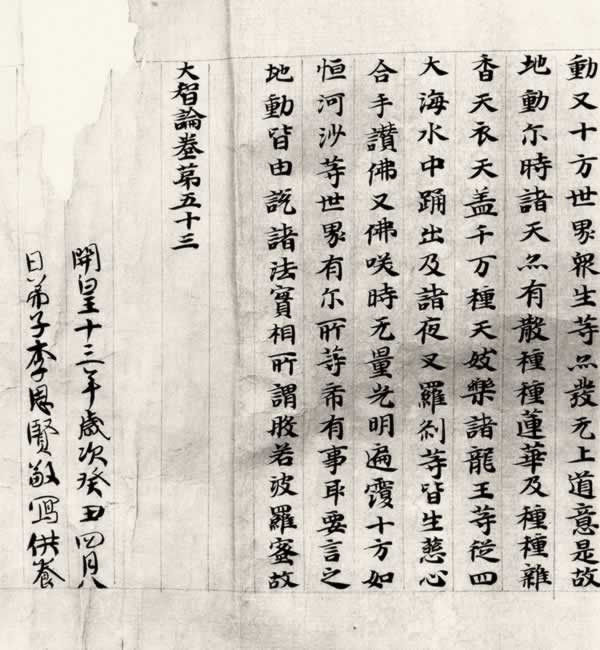 動又十方世界衆生等亦發无上道意是故
地動尒時諸天亦有散種種蓮華及種種雜
香天衣天盖千万種天妓樂諸龍王等從四
大海水中踊出及諸夜叉羅刹等皆生慈心
合手讃佛又佛咲時无量光明遍覆十方如
恒河沙等世界有尒所等希有事耶要言之
地動皆由說諸法實相所謂般若波羅蜜故
大智論卷第五十三
開皇十三年歲次癸丑四月八
日弟子李思賢敬寫供養